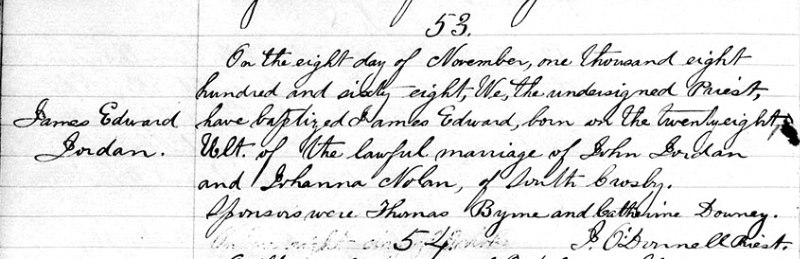 53.
On the eight day of November, one thousand eight
hundred and sixty eight, We, the undersigned Priest,
James Edward have baptized James Edward, born on the twenty eight
Jordan. Ult. of the lawful marriage of John Jordan
and Johanna Nolan, of South Crosby.
Sponsors were Thomas Byrne and Catherine Downey.
54. J. O'Donnell Priest.